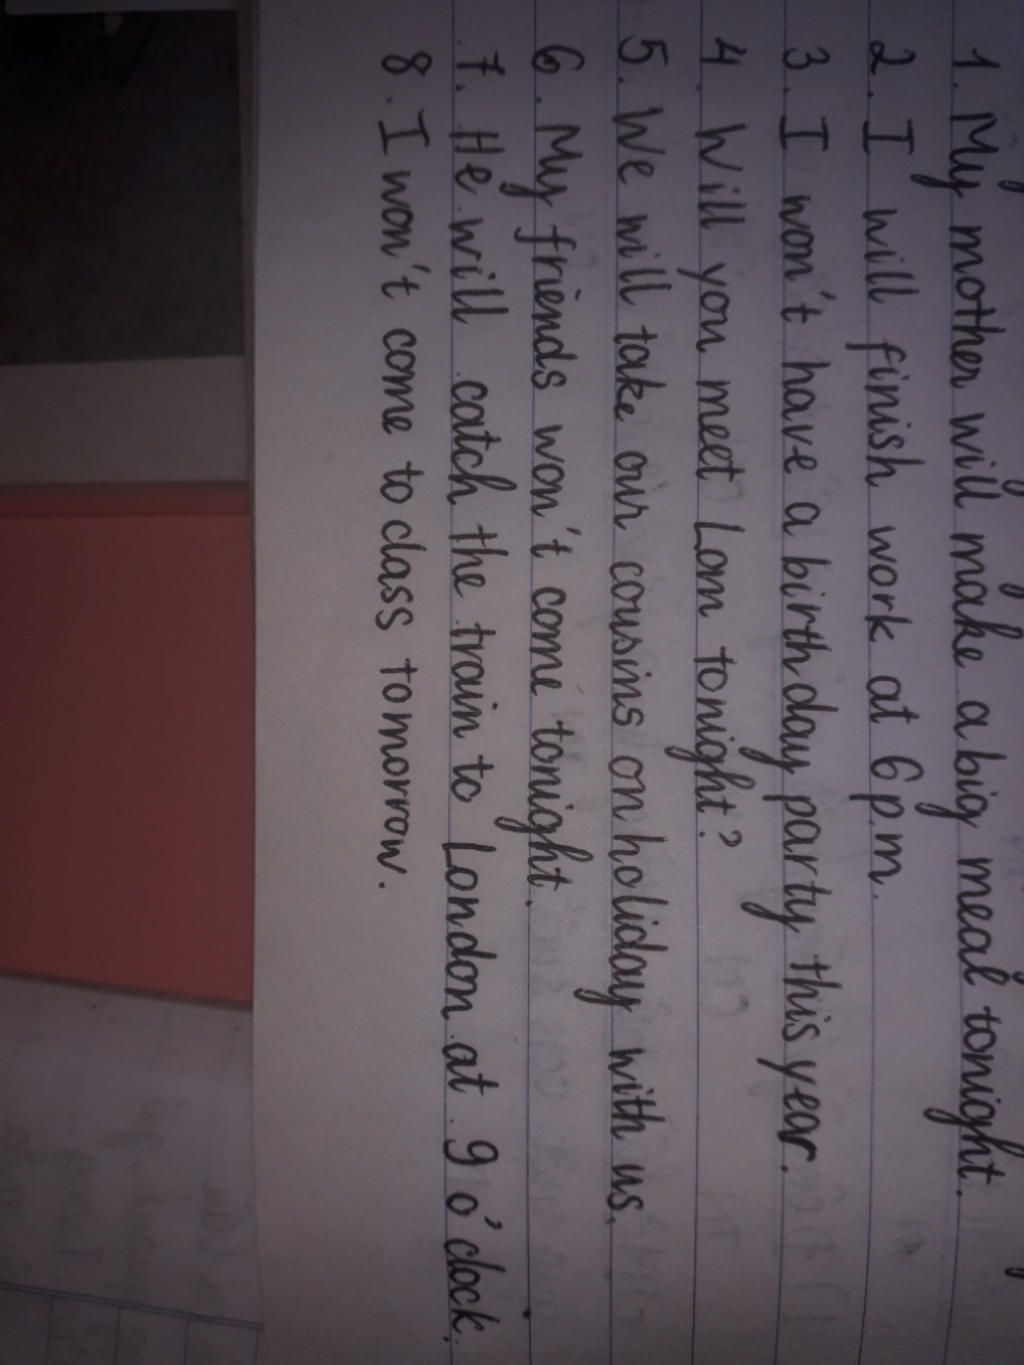 1. My mother will make a big meal tonight.
2. I will finish work at 6 p.m.
3. I won't have a birthday party this year.
4. Will you meet Lom tonight?
5. We will take our cousins on holiday with us.
6. My friends won't come tonight.
7. He will catch the train to London at 9 o'clock.
8. I won't come to class tomorrow.